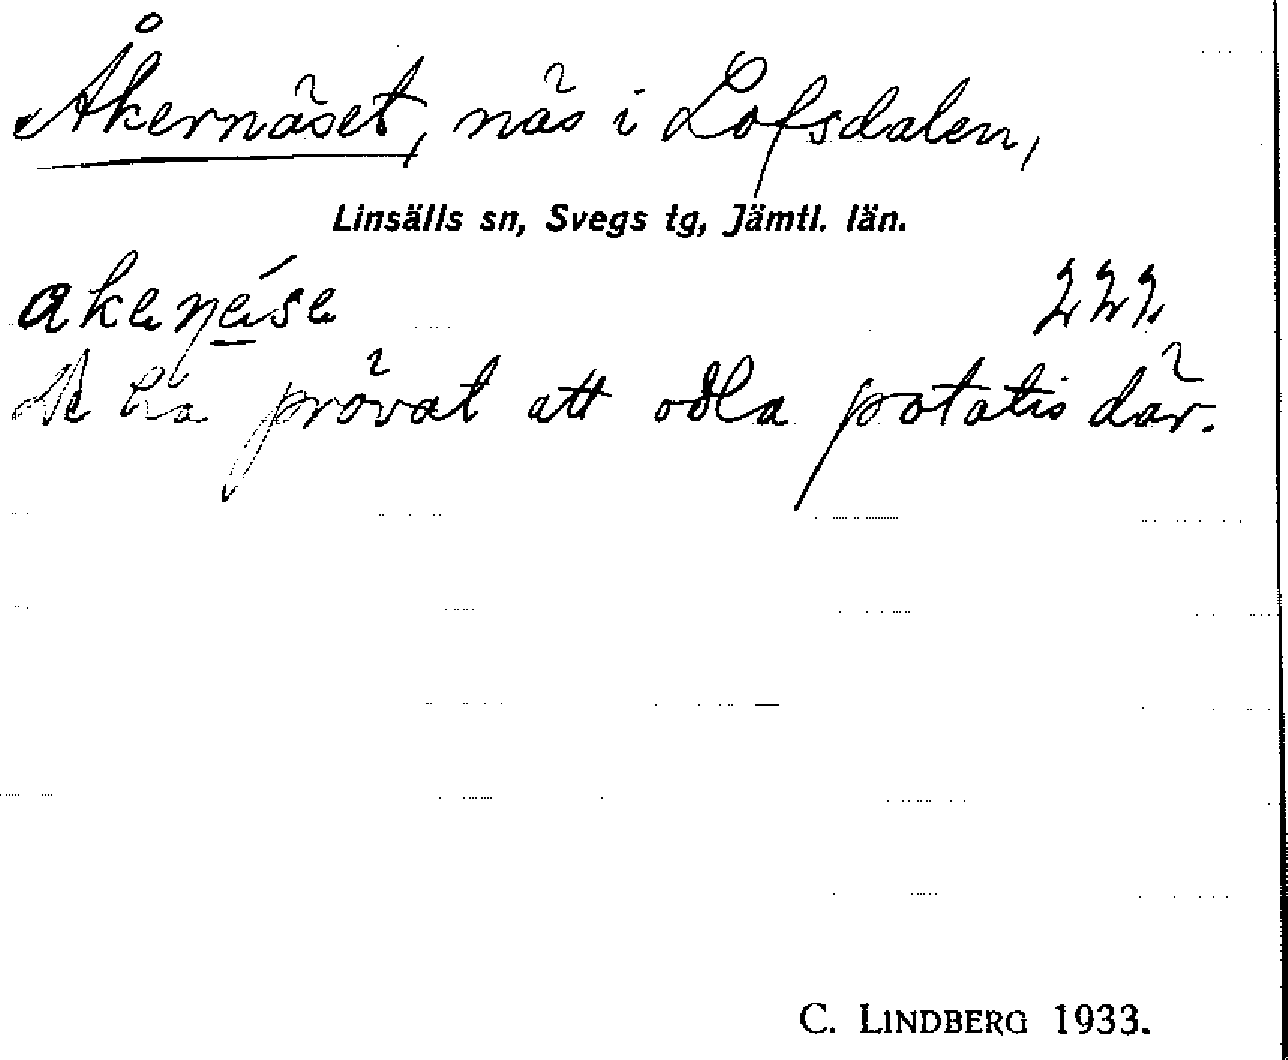 Åkernäset, näs i Lofsdalen,
Linsälls sn, Svegs tg, Jämtl. län.
222
De ha prövat att odla potatis där.
C. LINDBERG 1933.